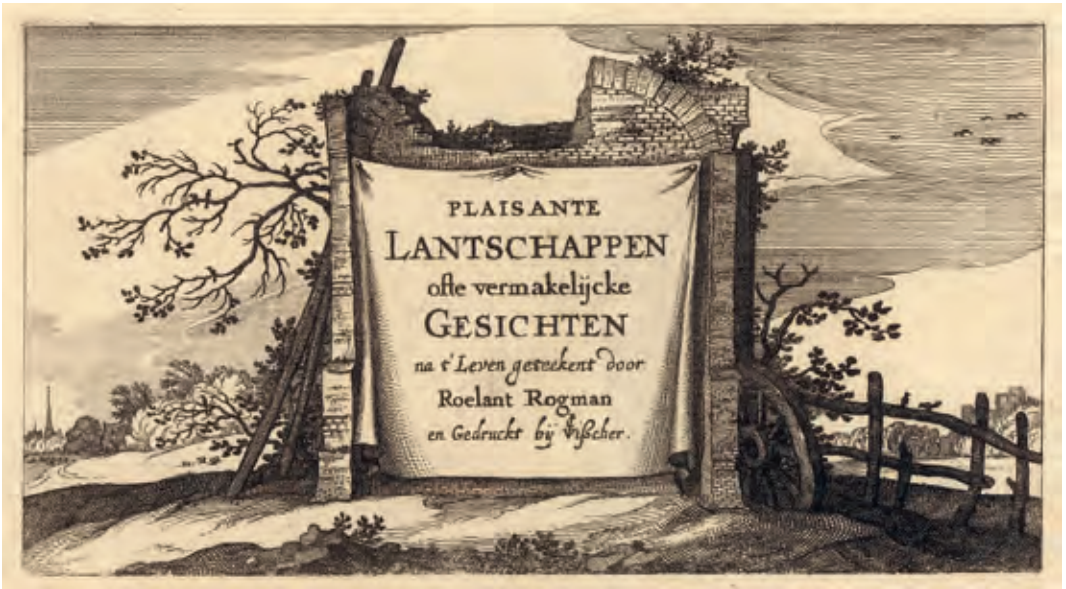 PLAISANTE
LANTSCHAPPEN
ofte vermakelijcke
GESICHTEN
na t' Leven geteekent door
Roelant Rogman
en Gedruckt bij Vißcher.